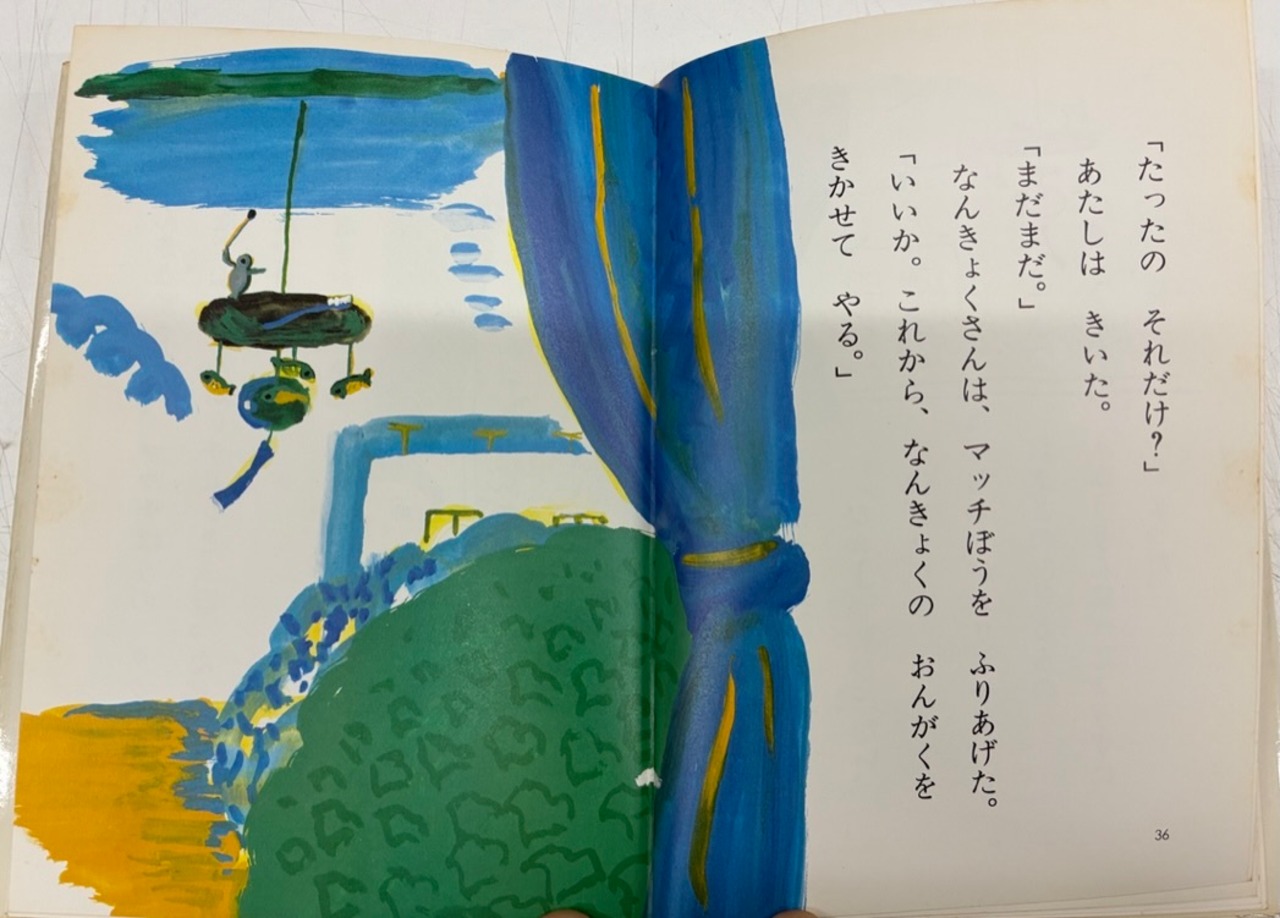 「たったの　それだけ？」
あたしは　きいた。
「まだまだ。」
なんきょくさんは、マッチぼうを　ふりあげた。
「いいか。これから、なんきょくの　おんがくを
きかせて　やる。」
36